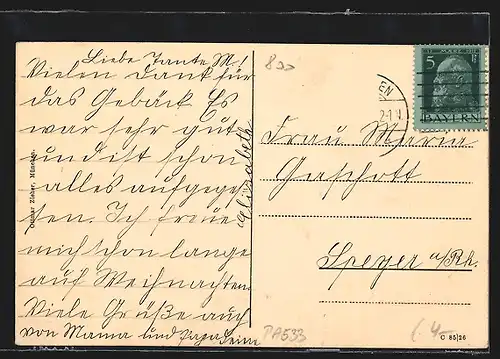 Liebe Tante M!
Vielen Dank für
das Gebäck Es
war sehr gut
und ist schon
alles aufgeges
sen. Ich freue
mich schon lange
auf Weihnachten.
Viele Grüße auch
von Mama und Papa Deine
Elisabeth
Ottmar Zieher, München.
5 Pf
BAYERN
Frau Maria
Speyer a/Rh.
PA533
C 85/26